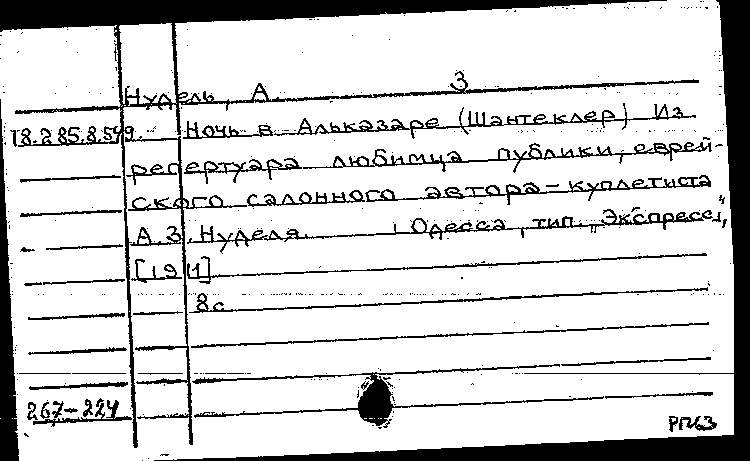 Нудель, А. З
18.285.8.549. Ночь в Альказаре (Шантеклер) Из
репертуара любимца публики, еврей-
ского салонного автора-куплетиста
А.З. Нуделя. Одесса, тип. „Экспресс",
[1911]
8с
267-224